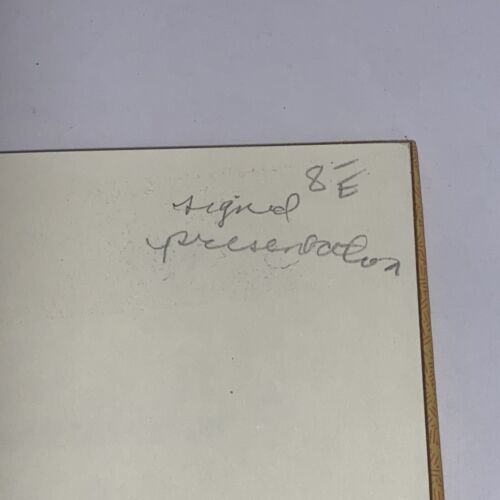 8E
signed
presentation